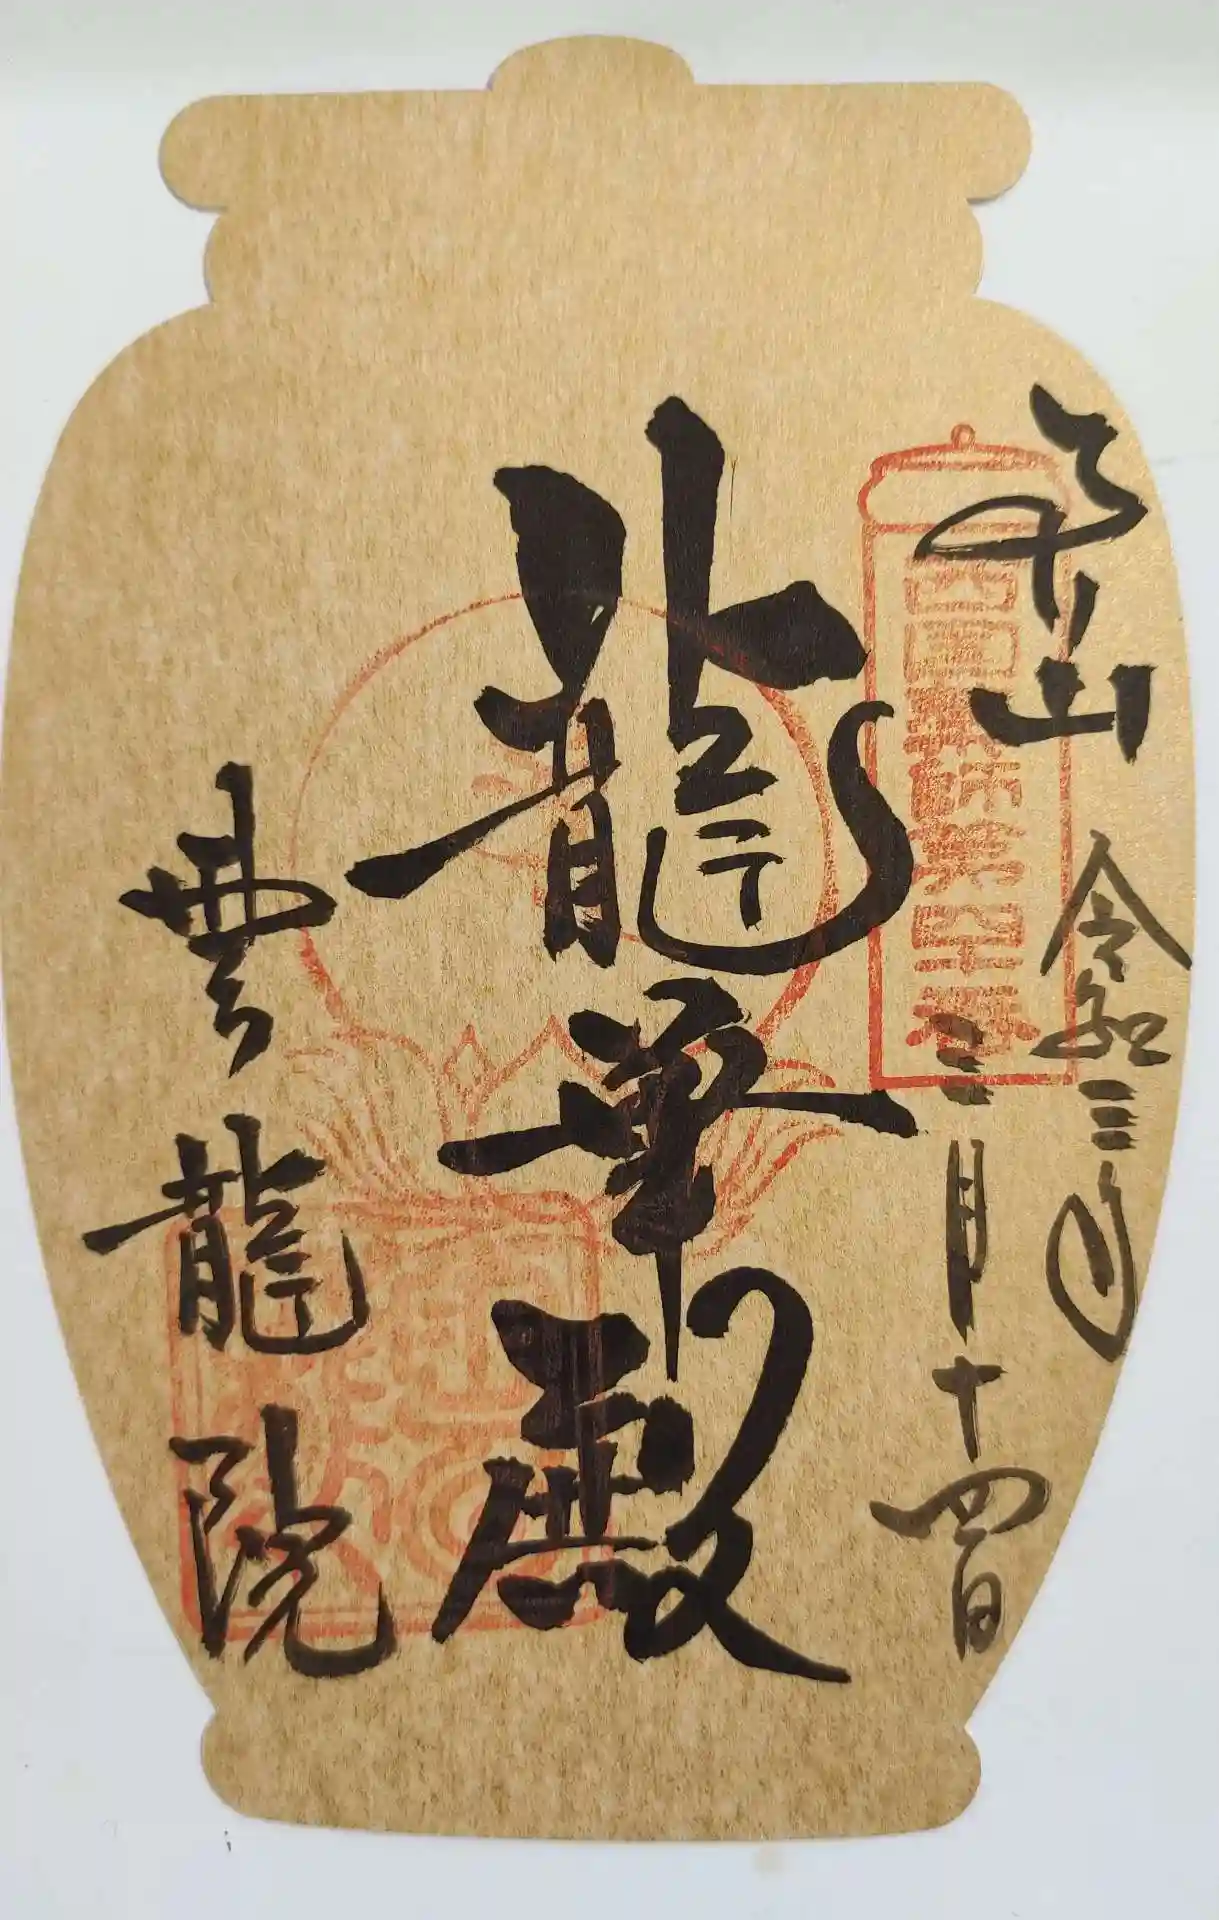 泉山 令和三年
三月十四日
龍華殿
雲龍院